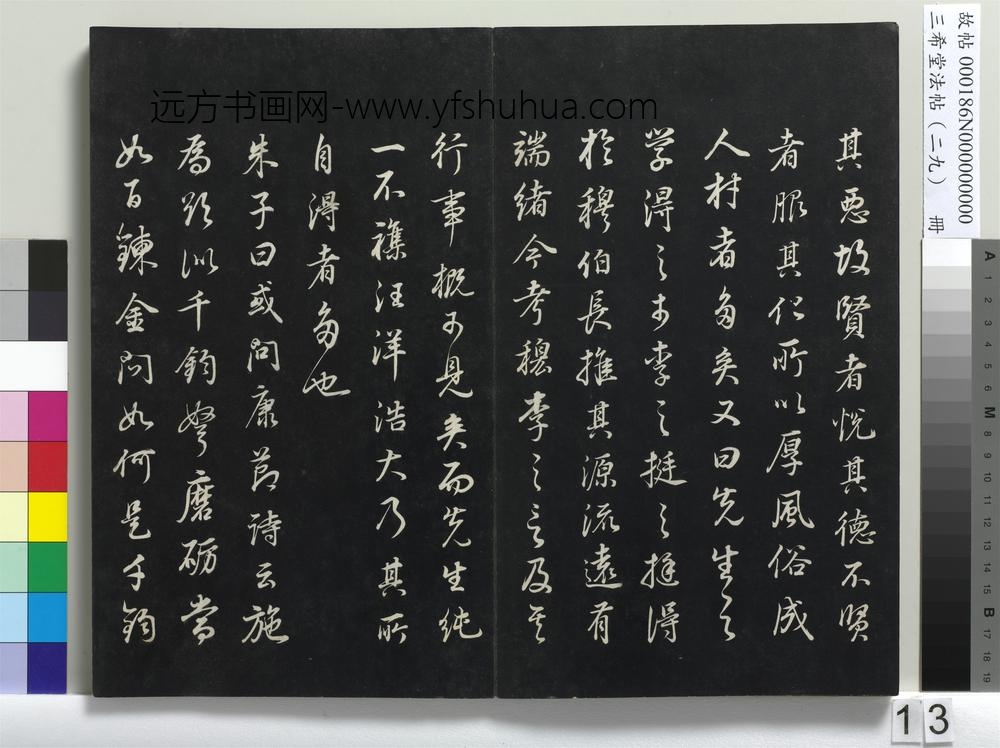 其惡故賢者悅其德不賢
者服其化所以厚風俗成
人材者多矣又曰先生之
学得之于李之挺之挺得
於穆伯長推其源流遠有
端緒今考穆李之言及其
行事概可見矣而先生純
一不襍汪洋浩大乃其所
自得者多也
朱子曰或问康节詩云施
為欲似千鈞弩磨礪當
如百鍊金问如何是千鈞
远方书画网-www.yfshuhua.com
故帖 000186N000000000
三希堂法帖(二九) 冊
A 1 2 3 4 5 6 M 8 9 10 11 12 13 14 15 B 17 18 19
13